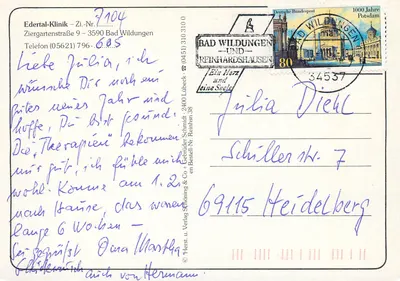 Edertal-Klinik - Zi.-Nr. 7104
Ziergartenstraße 9 - 3590 Bad Wildungen
Telefon (05621) 796-605
Liebe Julia, ich
wünsche Dir noch ein
gutes neues Jahr und
hoffe, Du bist gesund.
Die „Therapien" bekommen
mir gut, ich fühle mich
wohl. Komme am 1.2.
nach Hause, das waren
lange 6 Wochen -
sei gegrüßt Oma Martha
auch von Hermann
BAD WILDUNGEN
-UND-
REINHARDSHAUSEN
Ein Herz
und
eine Seele
BAD WILDUNGEN
34537
Deutsche Bundespost
1000 Jahre
Potsdam
80
Julia Diehl
Schillerstr. 7
69115 Heidelberg